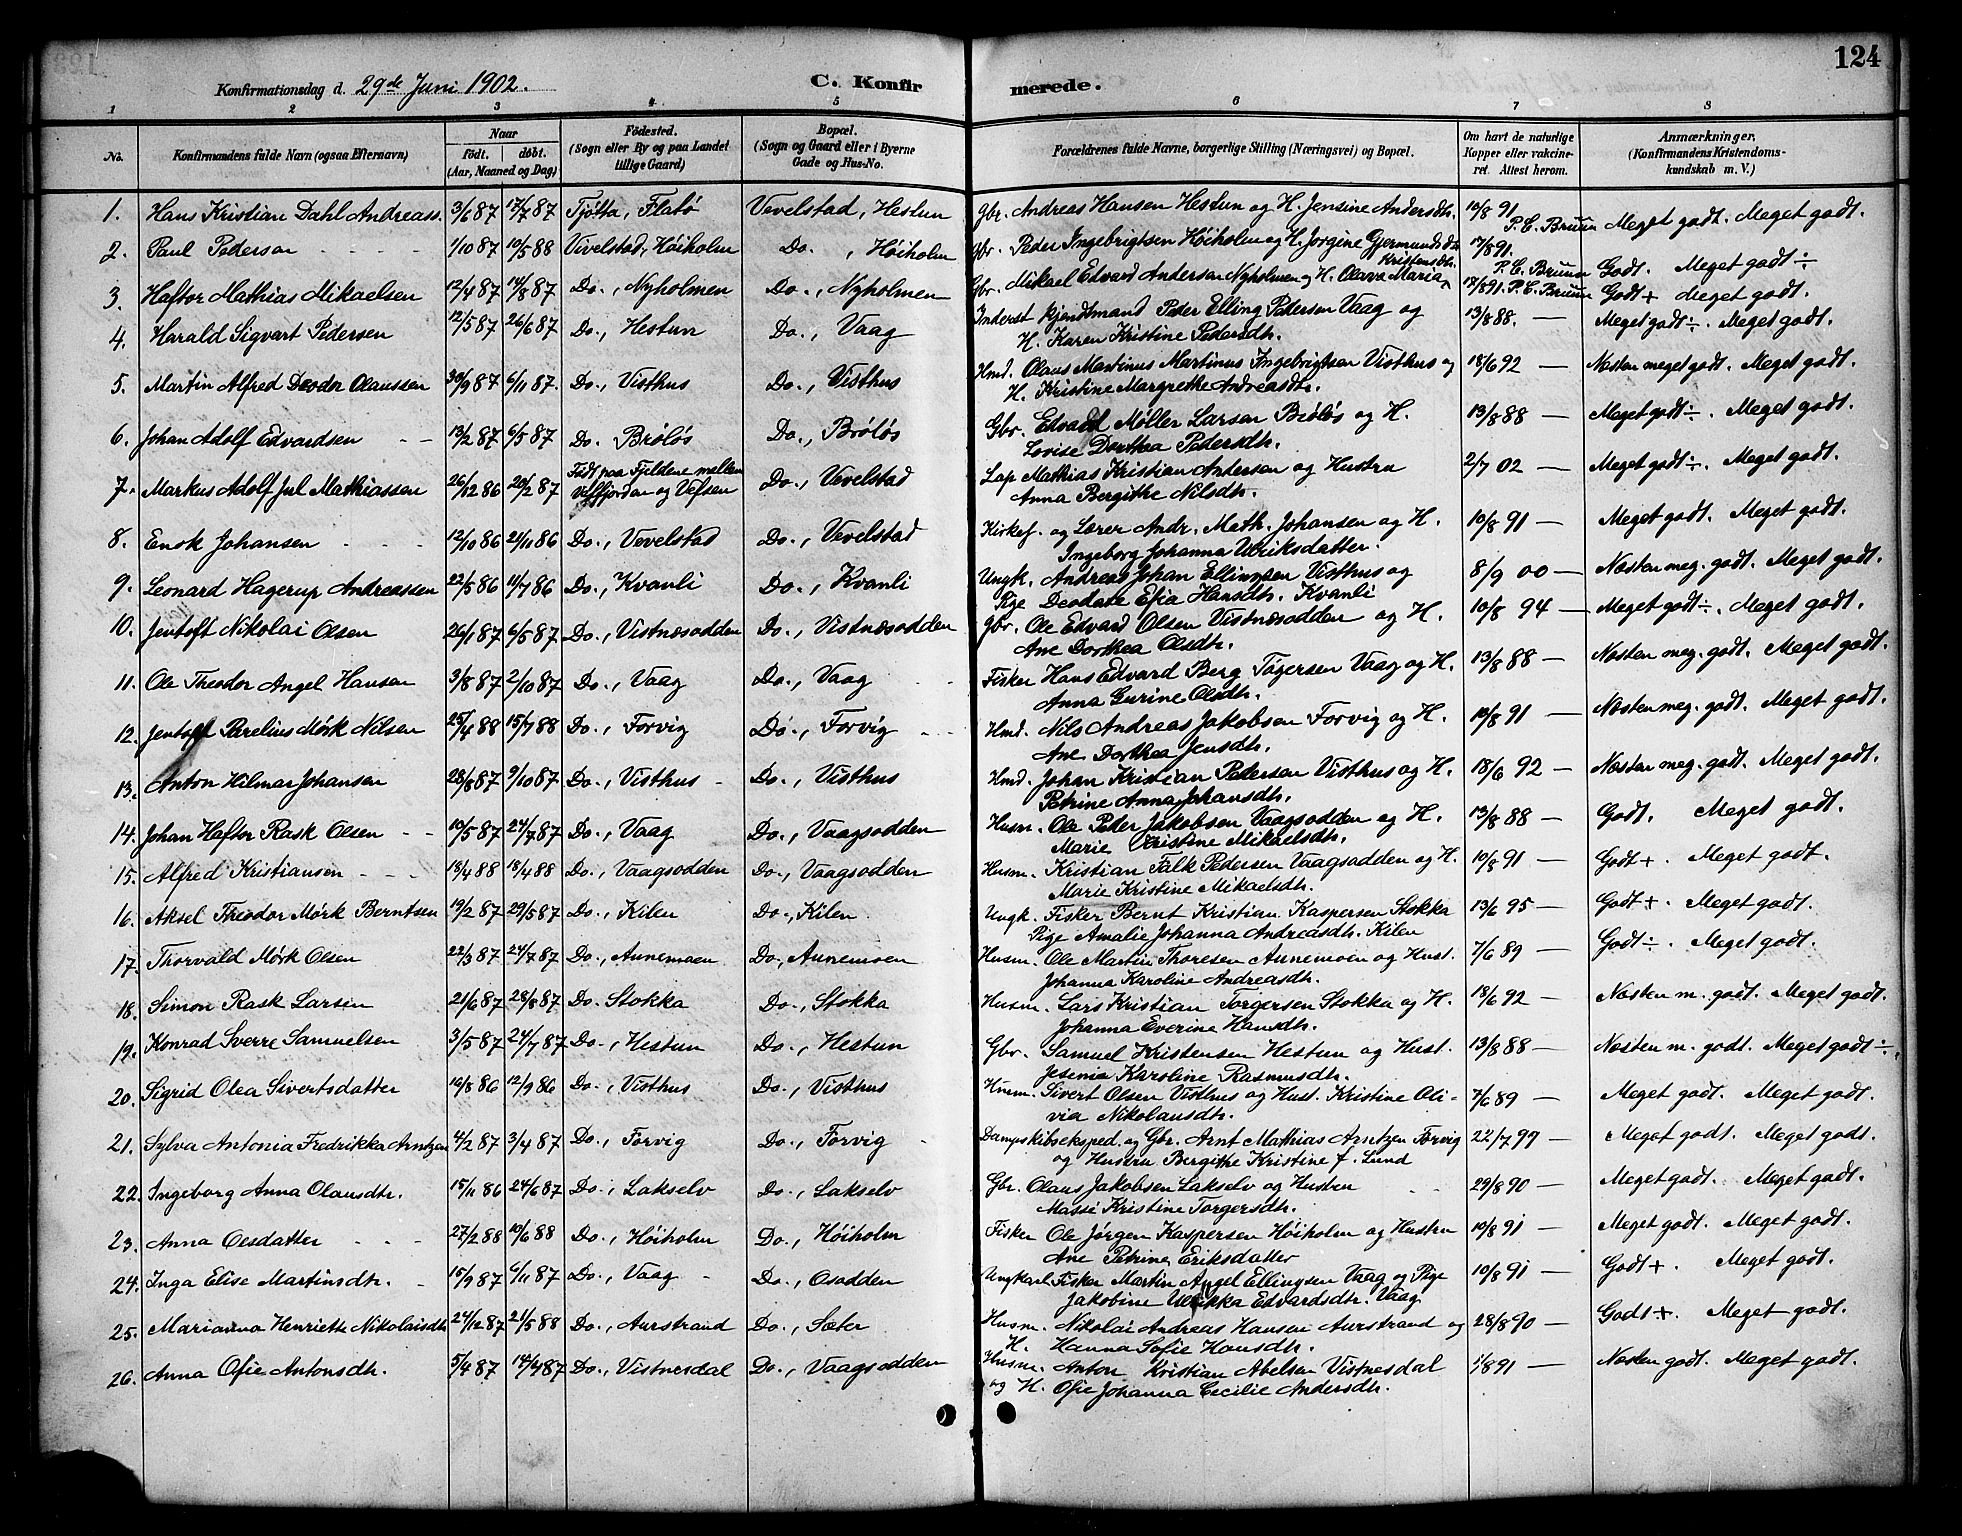 124
Konfirmationsdag d. 29de Juni 1902. C. Konfirmerede.
1 2 3 4 5 6 7 8
No. Konfirmandens fulde Navn (ogsaa Efternavn) Naar født. døbt. (Aar, Maaned og Dag) Fødested. (Sogn eller By og paa Landet tillige Gaard) Bopæl. (Sogn og Gaard eller i Byerne Gade og Hus-No. Forældrenes fulde Navne, borgerlige Stilling (Næringsvei) og Bopæl. Om havt de naturlige Kopper eller vakcineret. Attest herom. Anmærkninger. (Konfirmandens Kristendomskundskab m. V.)
1. Hans Kristian Dahl Andreass. 3/6 87 17/7 87 Tjøtta, Flatø Vevelstad, Hestun Gbr. Andreas Hansen Hestun og H. Jensine Andersdtr. 10/8 91 P. C. Bruun Meget godt. Meget godt.
2. Paul Pederson 1/10 87 10/5 88 Vivelstad, Høiholm Do., Høiholm Gbr. Peder Ingebrigtsen Høiholm og H. Jorgine Gjermundsd. 17/8 91. P. C. Bruun Godt. Meget godt ÷
3. Haftor Mathias Mikaelsen 12/4 87 14/8 87 Do., Nyholmen Do., Nyholmen Gbr. Mikael Edvard Andersen Nyholmen og H. Olava Maria Kristensdtr. 17/8 91. P. C. Bruun Godt + Meget godt.
4. Harald Sigvart Pedersen 12/5 87 26/6 87 Do., Hestun Do., Vaag Inderst kjendtmand Peder Elling Pedersen Vaag og
H. Karen Kristine Pedersdtr. 13/8 88. — Meget godt ÷. Meget godt.
5. Martin Alfred Deodor Olaussen 30/9 87 6/11 87. Do., Visthus Do., Visthus Hmd. Olaus Martinus Martinus Ingebrigtsen Visthus og
H. Kristine Margrethe Andreasdtr. 18/6 92 — Næsten meget godt. Meget godt.
6. Johan Adolf Edvardsen 13/2 87 6/5 87 Do. Brøløs Do., Brøløs Gbr. Edvard Møller Larsen Brøløs og H.
Lovise Dorthea Pedersdtr. 13/8 88 — Meget godt ÷. Meget godt.
7. Markus Adolf Jul Mathiassen 26/12 86 20/2 87 Født paa Fjeldene mellem Velfjorden og Vefsen Do., Vevelstad Lap Mathias Kristian Andersen og Hustru
Anna Bergithe Nilsdtr. 2/7 02 — Meget godt ÷. Meget godt.
8. Enok Johansen 12/10 86 21/11 86 Do., Vevelstad Do., Vevelstad Kirkes. og Lærer Andr. Math. Johansen og H.
Ingeborg Johanna Ulriksdatter. 10/8 91 — Meget godt. Meget godt.
9. Leonard Hagerup Andreassen 22/5 86 11/7 86 Do., Kvanli Do., Kvanli Ungk. Andreas Johan Ellingsen Visthus og
Pige Deodate Efia Hansdtr. Kvanli 8/9 00 — Næsten meg. godt. Meget godt.
10. Jentoft Nikolai Olsen 26/1 87 6/5 87 Do., Vistnæsodden Do., Vistnæsodden Gbr. Ole Edvard Olsen Vistnæsodden og H.
Ane Dorthea Olsdtr. 10/8 94 — Meget godt ÷. Meget godt.
11. Ole Theodor Angel Hansen 3/8 87 2/10 87 Do., Vaag Do., Vaag Fisker Hans Edvard Berg Tøgersen Vaag og H.
Anna Gurine Olsdtr. 13/8 88 — Næsten meg. godt. Meget godt.
12. Jentoft Parelius Mørk Nilsen 25/4 88 15/7 88 Do., Forvig Do., Forvig Hmd. Nils Andreas Jakobsen Forvig og H.
Ane Dorthea Jensdtr. 10/8 91 — Næsten meg. godt. Meget godt.
13. Anton Hilmar Johansen 28/8 87 9/10 87 Do., Visthus Do., Visthus Hmd. Johan Kristian Pedersen Visthus og H.
Petrine Anna Johansdtr. 18/6 92 — Næsten meg. godt. Meget godt.
14. Johan Haftor Rask Olsen 10/5 87 24/7 87 Do., Vaag Do., Vaagsodden Husm. Ole Peder Jakobsen Vaagsodden og H.
Marie Kristine Mikaelsdtr. 13/8 88 — Godt. Meget godt.
15. Alfred Kristiansen 13/4 88 18/4 88 Do., Vaagsodden Do., Vaagsodden Husm. Kristian Falk Pedersen Vaagsodden og H.
Marie Kristine Mikaelsdtr. 10/8 91 — Godt +. Meget godt.
16. Aksel Theodor Mørk Berntsen 19/2 87 29/5 87 Do., Kilen Do., Kilen Ungk. Fisker Bernt Kristian Kaspersen Stokka
Pige Amalie Johanna Andreasdtr. Kilen 13/6 95 — Godt +. Meget godt.
17. Thorvald Mørk Olsen 22/3 87 24/7 87 Do., Aunemoen Do., Aunemoen Husm. Ole Martin Thoresen Aunemoen og Hust.
Johanna Karoline Andreasdtr. 7/6 89 — Godt ÷. Meget godt.
18. Simon Rask Larsen 21/6 87 28/8 87 Do. Stokka Do., Stokka Husm. Lars Kristian Torgersen Stokka og H.
Johanna Everine Hansdtr. 18/6 92 — Næsten m. godt. Meget godt.
19. Konrad Sverre Samuelsen 3/5 87 24/7 87 Do., Hestun Do., Hestun Gbr. Samuel Kristensen Hestun og Hust.
Jesenia Karoline Rasmusdtr. 13/8 88 — Næsten m. godt. Meget godt ÷.
20. Sigrid Olea Sivertsdatter 10/8 86 12/9 86 Do., Visthus Do., Visthus Husm. Sivert Olsen Visthus og Hust. Kristine Oli-
via Nikolausdtr. 7/6 89 — Meget godt. Meget godt.
21. Sylva Antonia Fredrikka Arntzen 4/2 87 3/4 87 Do., Forvig Do., Forvig Dampskibseksped. og Gbr. Arnt Mathias Arntzen Forvig
og Hustru Bergithe Kristine f. Lund 22/7 99 — Meget godt. Meget godt.
22. Ingeborg Anna Olausdtr. 15/11 86 24/6 87 Do., Lakselv Do., Lakselv Gbr. Olaus Jakobsen Lakselv og Hustru
Massi Kristine Torgersdtr. 29/8 90 — Meget godt. Meget godt.
23. Anna Olesdatter 27/2 88 10/6 88 Do., Høiholm Do., Høiholm Fisker Ole Jørgen Kaspersen Høiholm og Hustru
Ane Petrine Eriksdatter 10/8 91 — Meget godt. Meget godt.
24. Inga Elise Martinsdtr. 15/9 87 6/11 87 Do., Vaag Do., Osodden Ungkarl Fisker Martin Angel Ellingsen Vaag og Pige
Jakobine Ulrikka Edvardsdtr. Vaag 10/8 91 — Godt +. Meget godt.
25. Marianna Henriette Nikolaisdtr 24/12 87 21/5 88 Do., Aurstrand Do., Sæter Husm. Nikolai Andreas Hansen Aurstrand og
H. Hanna Sofie Hansdtr. 28/8 90 — Godt +. Meget godt.
26. Anna Ofie Antonsdtr. 5/4 87 14/7 87 Do., Vistnesdal Do., Vaagsodden Husm. Anton Kristian Abelsen Vistnesdal
og H. Ofie Johanna Cecilie Andersdtr. 1/8 91 — Næsten godt. Meget godt.